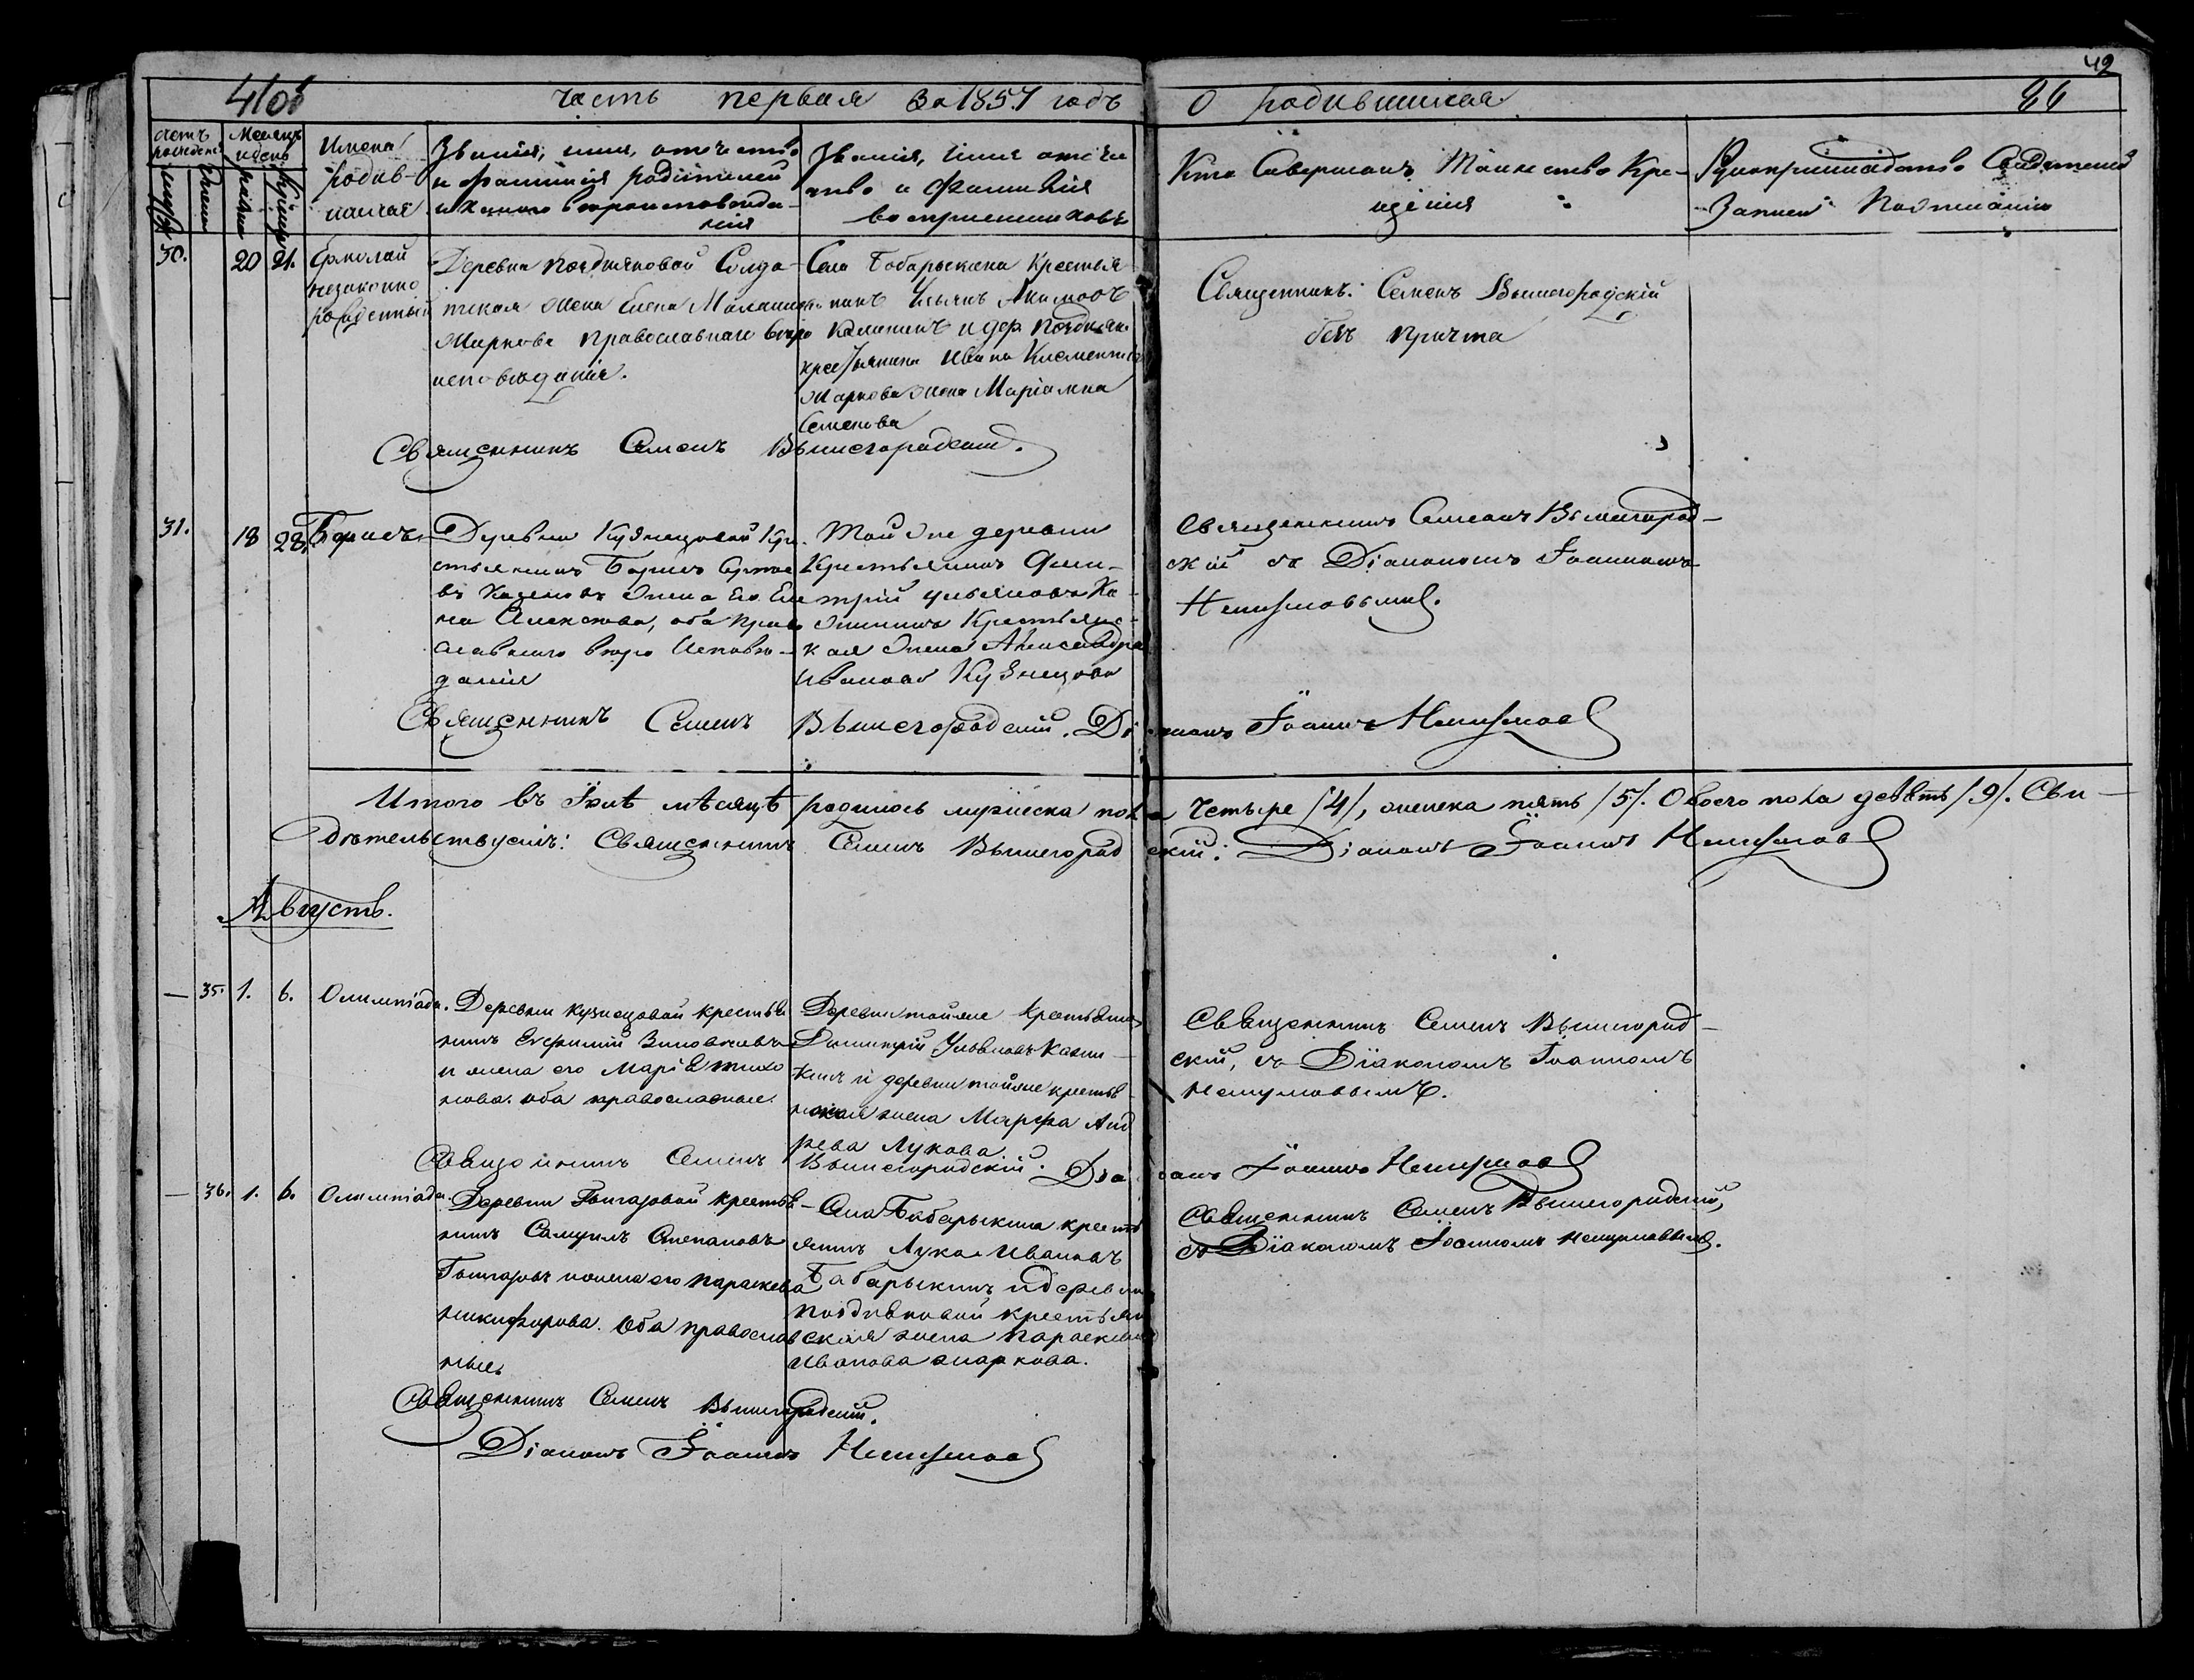 41об
часть первая за 1857 годъ
О родившихся
42
86
счетъ рожден.
Месяцъ и день
Имена родив-
шихся
Званія, имя, отчество
и фамилія родителей
и какого вероисповеда-
нія
Званія, имя отече
ство и Фамилія
воспріемниковъ
Кто Совершалъ Таинство Кре-
щенія
Рукоприкладство Свидетелей
Записи
30.
20
21.
Ермолай
незаконно
рожденный
Деревни Поздняковой Солда-
тская жена Елена
Маркова православнаго веро
исповеданія.
Села Бабарыкина крестья
нинъ Ульянъ Акимовъ
и дер. Поздняк.
крестьянина Ивана Клементьев
Маркова жена Маріамна
Семенова
Священникъ: Семенъ Вышегородскій
безъ причта
Священникъ Семенъ Вышегородскій.
31.
18
28.
Борисъ
Деревни Кузнецовой Кре-
стьянинъ Борисъ
въ жена Его Еле
на Алексеева, оба Право
славнаго веро Исповѣ-
данія
Той же деревни
Крестьянинъ Дми-
трій Ульяновъ Ка-
Крестьянс-
кая жена Александра
Иванова Кузнецова
Священникъ Семенъ Вышегород-
скій съ Діакономъ Іоанномъ
Священникъ Семенъ Вышегородскій. Діаконъ Іоаннъ
Итого въ Іюлѣ мѣсяцѣ родилось мужеска пола Четыре /4/, женска пять /5/. Обоего пола девять /9/. Сви-
дѣтельствуемъ: Священникъ Семенъ Вышегородскій: Діаконъ Іоаннъ
Августъ.
— 35. 1. 6.
Олимпіада.
Деревни Кузнецовой крестья
нинъ Евфимій
и жена его Марія Тихо
нова. оба православные.
Деревни тойже Крестьянинъ
Димитрій Ульяновъ
и деревни тойже крестья
нская жена Марфа Анд
реева Лукова.
Священникъ Семенъ Вышегород-
скій, съ Діакономъ Іоанномъ
Священникъ Семенъ Вышегородскій. Діаконъ Іоаннъ
— 36. 1. 6.
Олимпіада.
Деревни крестья-
нинъ Самуилъ Степановъ
и жена его Параскева
Никифорова. Оба православ
ные
Села Бабарыкина кресть
янинъ Лука Ивановъ
Бабарыкинъ и деревни
Поздняковой крестьян
ская жена Параскева
Иванова Маркова.
Священникъ Семенъ Вышегородскій,
съ Діакономъ Іоанномъ
Священникъ Семенъ Вышегородскій.
Діаконъ Іоаннъ